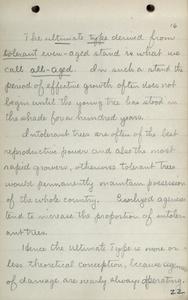 16
The ultimate type derived from
tolerant even-aged stand is what we
call all-aged. In such a stand the
period of effective growth often does not
begin until the young tree has stood in
the shade for a hundred years.
Intolerant trees are often of the best
reproductive power and also the most
rapid growers, otherwise tolerant trees
would permanently maintain possession
of the whole country. Evolved agencies
tend to increase the proportion of intoler-
ant trees.
Hence the Ultimate Type is more or
less theoretical conception, because
of damage are nearly always operating.
22